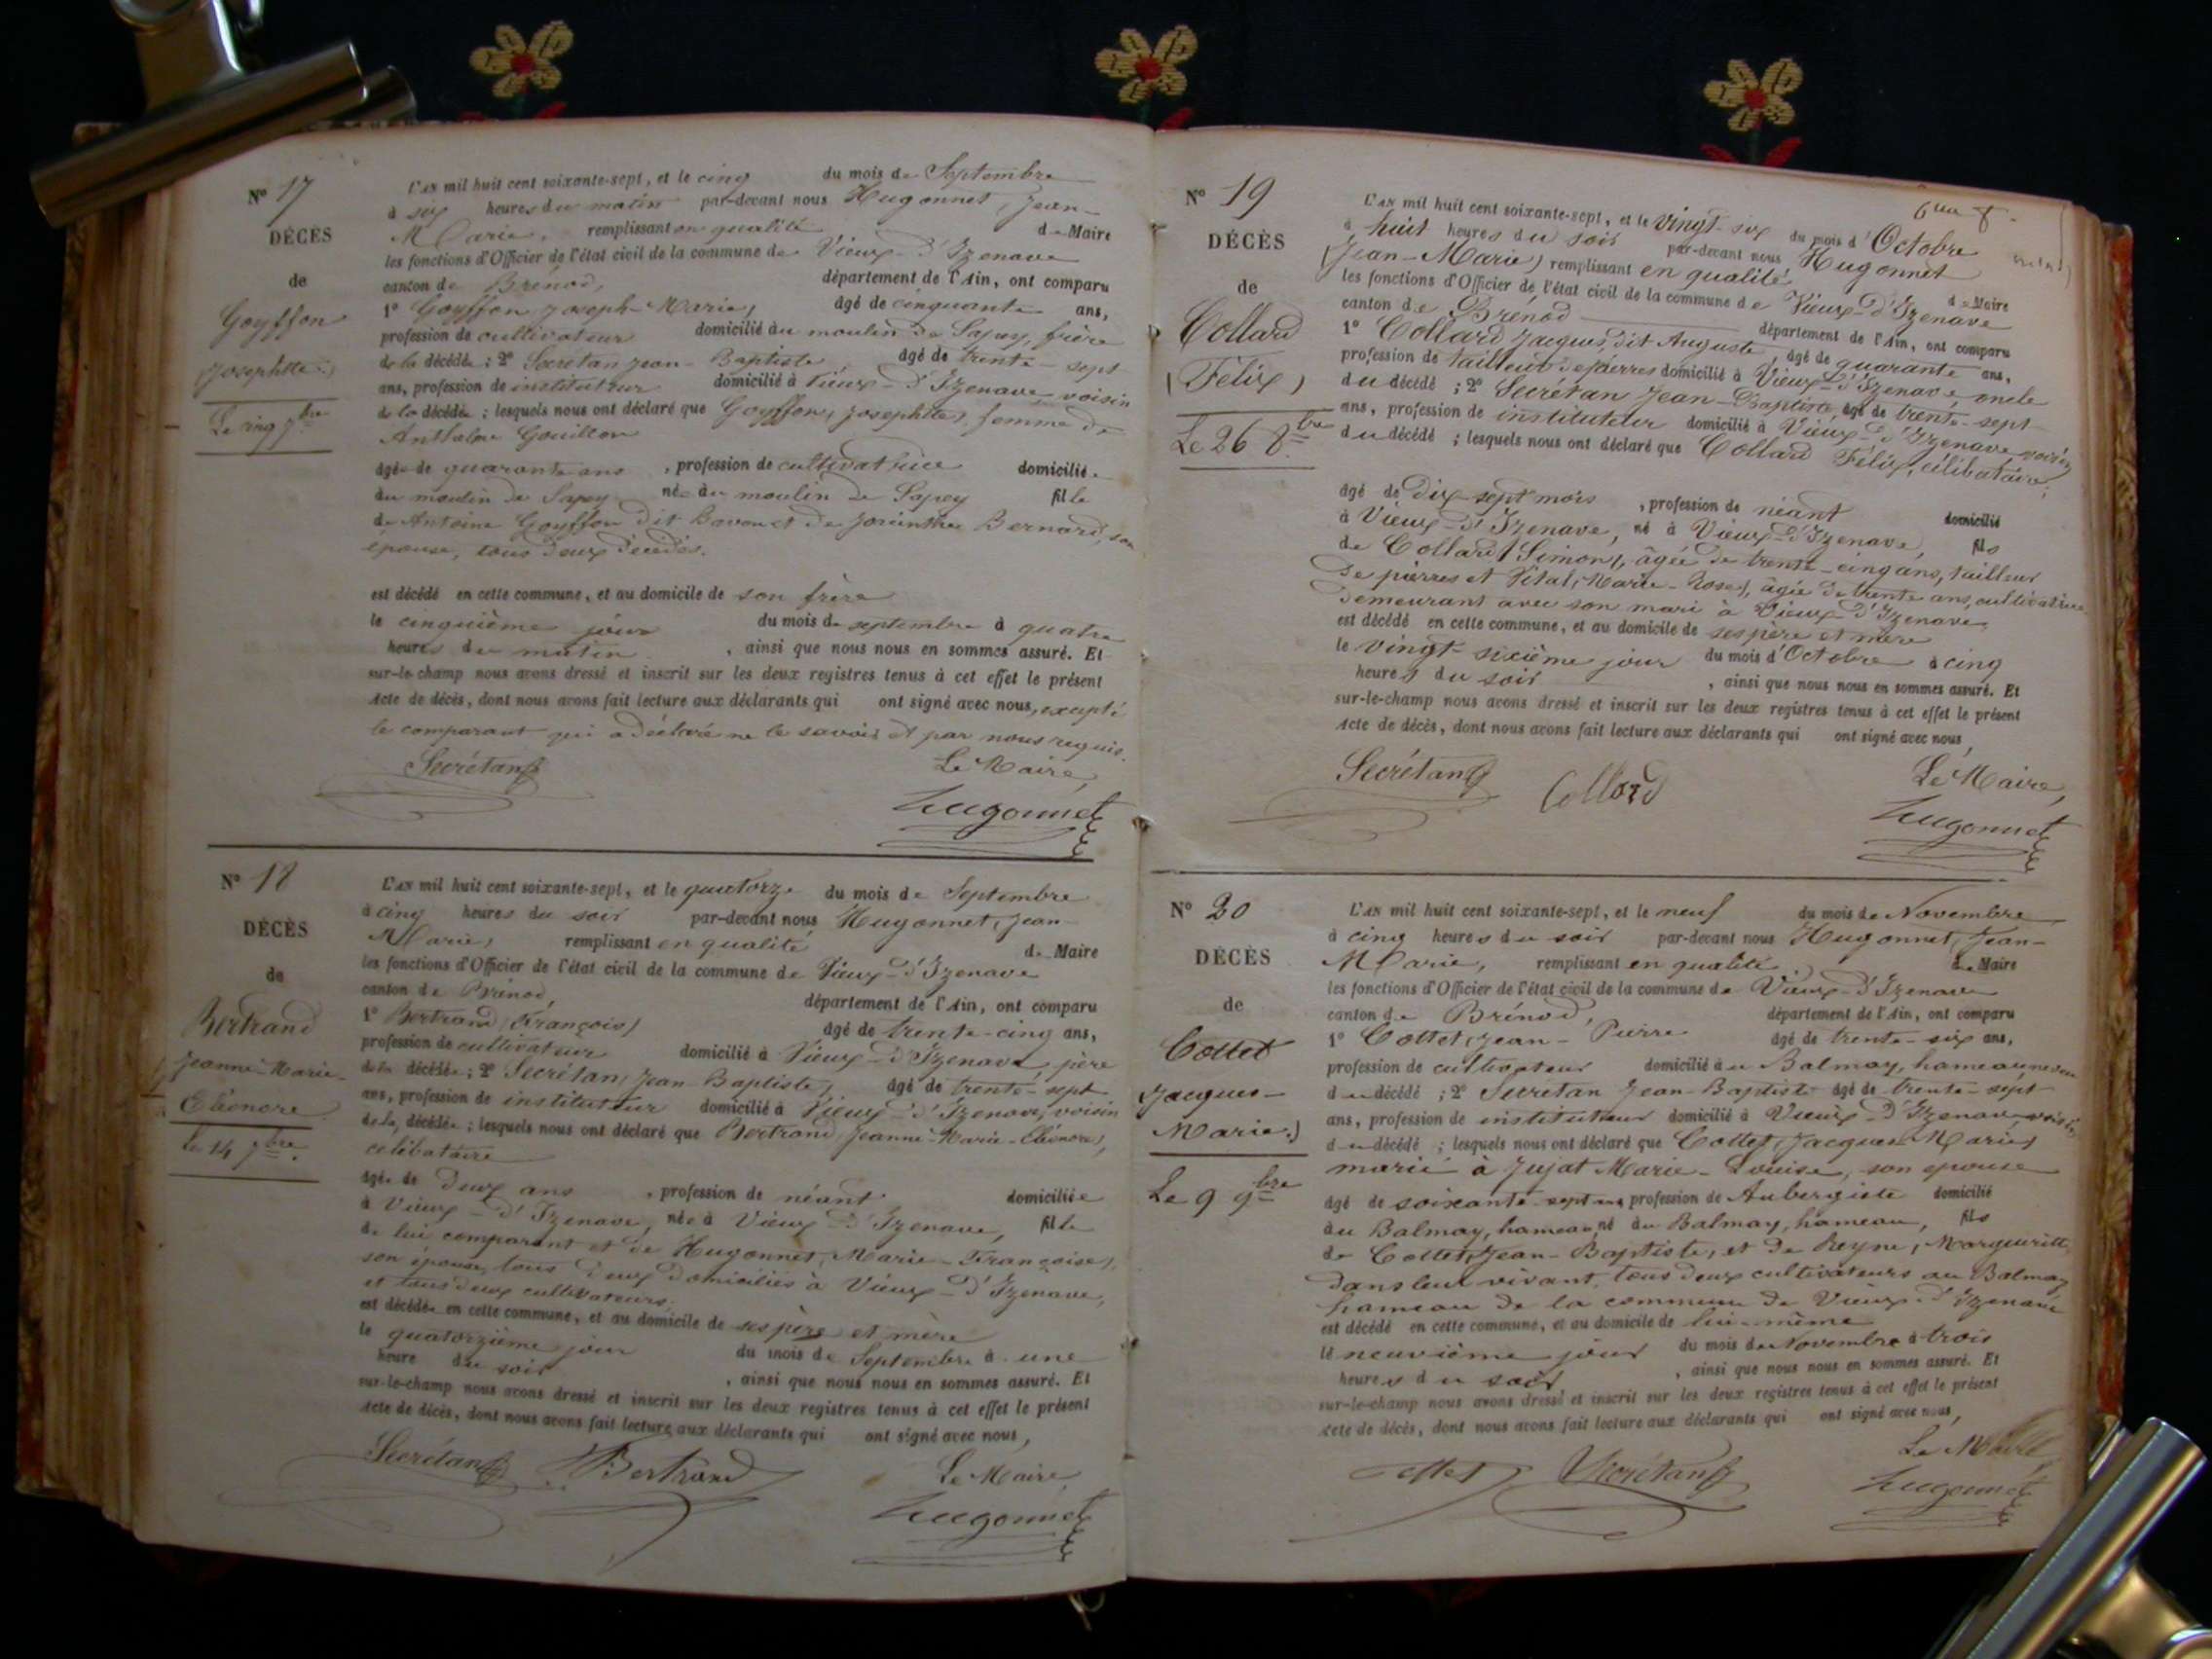 N° 17
DÉCÈS
de
Goyffon
Josephte
Le cinq 7bre
L'AN mil huit cent soixante-sept, et le cinq du mois de Septembre
à six heures du matin par-devant nous Hugonnet, Jean-
Marie, remplissant en qualité de Maire
les fonctions d'Officier de l'état civil de la commune de Vieux-d'Izenave
canton de Brénod, département de l'Ain, ont comparu
1° Goyffon Joseph-Marie, âgé de cinquante ans,
profession de cultivateur domicilié au moulin de Sapey, frère
de la décédée ; 2° Secrétan Jean-Baptiste âgé de trente-sept
ans, profession de instituteur domicilié à Vieux-d'Izenave voisin
de la décédée ; lesquels nous ont déclaré que Goyffon, Josephte, femme de
Anthelme Gouillon
âgée de quarante ans, profession de cultivatrice domiciliée
au moulin de Sapey née au moulin de Sapey fille
de Antoine Goyffon dit Bavon et de Bernard, son
épouse, tous deux décédés.
est décédé en cette commune, et au domicile de son frère
le cinquième jour du mois de septembre à quatre
heures du matin, ainsi que nous nous en sommes assuré. Et
sur-le-champ nous avons dressé et inscrit sur les deux registres tenus à cet effet le présent
Acte de décès, dont nous avons fait lecture aux déclarants qui ont signé avec nous, excepté
le comparant qui a déclaré ne le savoir et par nous requis.
Secrétan Le Maire,
Hugonnet
N° 18
DÉCÈS
de
Bertrand
Jeanne-Marie-
Eléonore
Le 14 7bre.
L'AN mil huit cent soixante-sept, et le quatorze du mois de Septembre
à cinq heures du soir par-devant nous Hugonnet, Jean-
Marie, remplissant en qualité de Maire
les fonctions d'Officier de l'état civil de la commune de Vieux-d'Izenave
canton de Brénod, département de l'Ain, ont comparu
1° Bertrand (François) âgé de trente-cinq ans,
profession de cultivateur domicilié à Vieux-d'Izenave père
de la décédée ; 2° Secrétan, Jean-Baptiste, âgé de trente-sept
ans, profession de instituteur domicilié à Vieux-d'Izenave, voisin
de la décédée ; lesquels nous ont déclaré que Bertrand, Jeanne-Marie-Eléonore,
célibataire
âgée de deux ans, profession de néant domiciliée
à Vieux-d'Izenave, née à Vieux-d'Izenave, fille
de lui comparant et de Hugonnet, Marie-Françoise,
son épouse, tous deux domiciliés à Vieux-d'Izenave,
et tous deux cultivateurs.
est décédée en cette commune, et au domicile de ses père et mère
le quatorzième jour du mois de Septembre à une
heure du soir, ainsi que nous nous en sommes assuré. Et
sur-le-champ nous avons dressé et inscrit sur les deux registres tenus à cet effet le présent
Acte de décès, dont nous avons fait lecture aux déclarants qui ont signé avec nous,
Secrétan Bertrand Le Maire,
Hugonnet
N° 19
DÉCÈS
de
Collard
(Félix)
Le 26 8bre
L'AN mil huit cent soixante-sept, et le vingt-six du mois d'Octobre
à huit heures du soir par-devant nous Hugonnet
(Jean-Marie) remplissant en qualité de Maire
les fonctions d'Officier de l'état civil de la commune de Vieux-d'Izenave
canton de Brénod département de l'Ain, ont comparu
1° Collard Jacques, dit Auguste, âgé de quarante ans,
profession de tailleur de pierres domicilié à Vieux-d'Izenave oncle
du décédé ; 2° Secrétan Jean-Baptiste, âgé de trente-sept
ans, profession de instituteur domicilié à Vieux-d'Izenave voisin
du décédé ; lesquels nous ont déclaré que Collard Félix, célibataire,
âgé de dix-sept mois, profession de néant domicilié
à Vieux-d'Izenave, né à Vieux-d'Izenave, fils
de Collard (Simon), âgée de trente-cinq ans, tailleur
de pierres et Vital, Marie-Rose), âgée de trente ans, cultivatrice
demeurant avec son mari à Vieux-d'Izenave,
est décédé en cette commune, et au domicile de ses père et mère
le vingt-sixième jour du mois d'Octobre à cinq
heures du soir, ainsi que nous nous en sommes assuré. Et
sur-le-champ nous avons dressé et inscrit sur les deux registres tenus à cet effet le présent
Acte de décès, dont nous avons fait lecture aux déclarants qui ont signé avec nous,
Secrétan Collard Le Maire,
Hugonnet
N° 20
DÉCÈS
de
Cottet
Jacques-
Marie.)
Le 9 9bre
L'AN mil huit cent soixante-sept, et le neuf du mois de Novembre
à cinq heures du soir par-devant nous Hugonnet, Jean-
Marie, remplissant en qualité de Maire
les fonctions d'Officier de l'état civil de la commune de Vieux-d'Izenave
canton de Brénod, département de l'Ain, ont comparu
1° Cottet, Jean-Pierre âgé de trente-six ans,
profession de cultivateur domicilié au Balmay, hameau neveu
du décédé ; 2° Secrétan Jean-Baptiste âgé de trente-sept
ans, profession de instituteur domicilié à Vieux-d'Izenave, voisin
du décédé ; lesquels nous ont déclaré que Cottet, Jacques Marie)
marié à Jujat Marie-Louise, son épouse
âgé de soixante-sept ans profession de Aubergiste domicilié
au Balmay, hameau, né au Balmay, hameau, fils
de Cottet, Jean-Baptiste, et de Reyne, Marguerite
dans leur vivant, tous deux cultivateurs au Balmay
hameau de la commune de Vieux-d'Izenave
est décédé en cette commune, et au domicile de lui-même
le neuvième jour du mois de Novembre à trois
heures du soir, ainsi que nous nous en sommes assuré. Et
sur-le-champ nous avons dressé et inscrit sur les deux registres tenus à cet effet le présent
Acte de décès, dont nous avons fait lecture aux déclarants qui ont signé avec nous,
Cottet Secrétan Le Maire,
Hugonnet